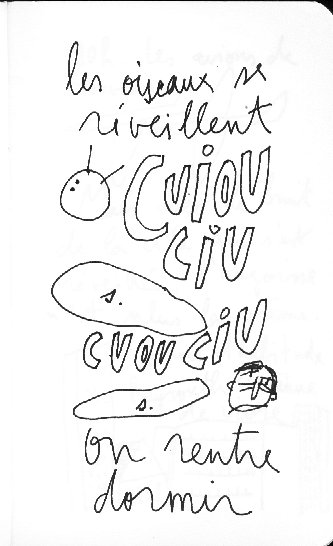 les oiseaux se
réveillent
CUIOU
CIU
s.
CUOU CIU
s.
on rentre
dormir